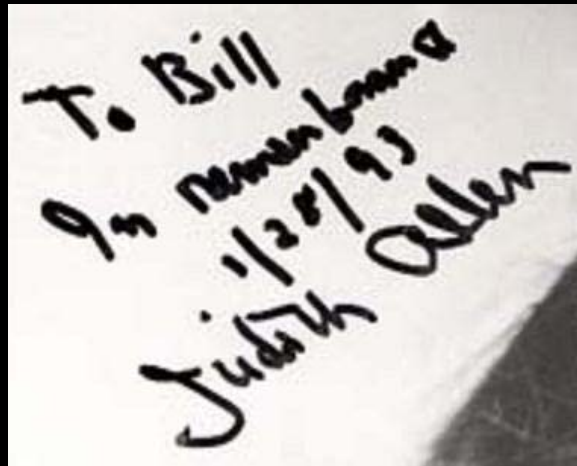 To Bill
In remembrance
1/28/93
Judith Allen